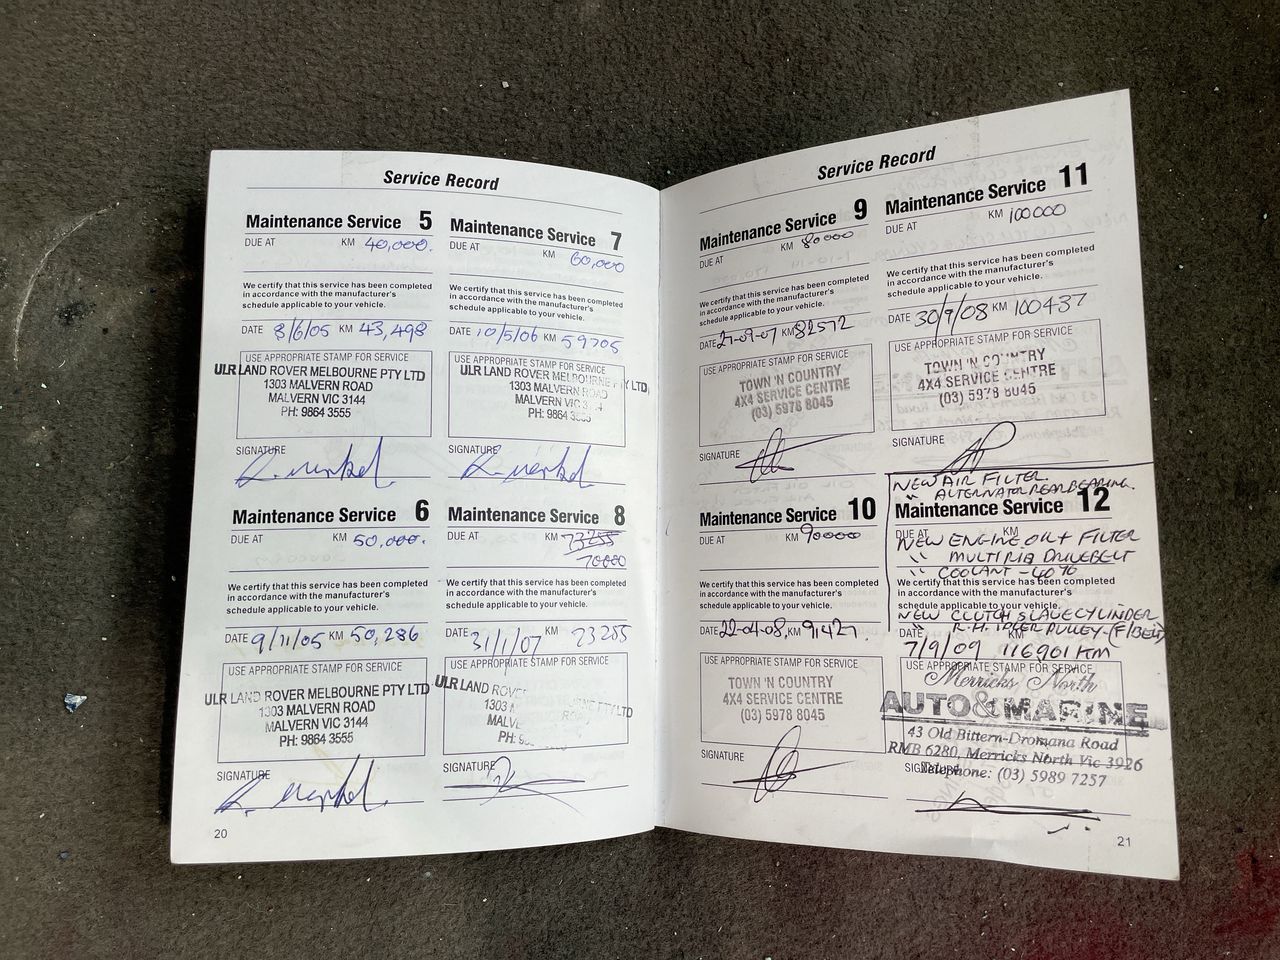 Service Record
Maintenance Service 5
DUE AT KM 40,000.
We certify that this service has been completed
in accordance with the manufacturer's
schedule applicable to your vehicle.
DATE 8/6/05 KM 43,498
USE APPROPRIATE STAMP FOR SERVICE
ULR LAND ROVER MELBOURNE PTY LTD
1303 MALVERN ROAD
MALVERN VIC 3144
PH: 9864 3555
SIGNATURE
Maintenance Service 6
DUE AT KM 50,000.
We certify that this service has been completed
in accordance with the manufacturer's
schedule applicable to your vehicle.
DATE 9/11/05 KM 50,286
USE APPROPRIATE STAMP FOR SERVICE
ULR LAND ROVER MELBOURNE PTY LTD
1303 MALVERN ROAD
MALVERN VIC 3144
PH: 9864 3555
SIGNATURE
20
Maintenance Service 7
DUE AT KM 60,000
We certify that this service has been completed
in accordance with the manufacturer's
schedule applicable to your vehicle.
DATE 10/5/06 KM 59705
USE APPROPRIATE STAMP FOR SERVICE
ULR LAND ROVER MELBOURNE PTY LTD
1303 MALVERN ROAD
MALVERN VIC
PH: 9864
SIGNATURE
Maintenance Service 8
DUE AT KM 73255
70000
We certify that this service has been completed
in accordance with the manufacturer's
schedule applicable to your vehicle.
DATE 31/1/07 KM 73255
USE APPROPRIATE STAMP FOR SERVICE
ULR LAND ROVER PTY LTD
1303
PH:
SIGNATURE
Service Record
Maintenance Service 9
DUE AT KM 80000
We certify that this service has been completed
in accordance with the manufacturer's
schedule applicable to your vehicle.
DATE 21-09-07 KM 82572
USE APPROPRIATE STAMP FOR SERVICE
TOWN 'N COUNTRY
4X4 SERVICE CENTRE
(03) 5978 8045
SIGNATURE
Maintenance Service 10
DUE AT KM 90000
We certify that this service has been completed
in accordance with the manufacturer's
schedule applicable to your vehicle.
DATE 22-04-08 KM 91427
USE APPROPRIATE STAMP FOR SERVICE
TOWN 'N COUNTRY
4X4 SERVICE CENTRE
(03) 5978 8045
SIGNATURE
Maintenance Service 11
DUE AT KM 100000
We certify that this service has been completed
in accordance with the manufacturer's
schedule applicable to your vehicle.
DATE 30/9/08 KM 100437
USE APPROPRIATE STAMP FOR SERVICE
TOWN 'N COUNTRY
4X4 SERVICE CENTRE
(03) 5978 8045
SIGNATURE
NEW AIR FILTER.
" ALTERNATOR REAR BEARING.
Maintenance Service 12
DUE AT KM
NEW ENGINE OIL + FILTER
" MULTI RIB DRIVEBELT
" COOLANT - 40%
We certify that this service has been completed
in accordance with the manufacturer's
schedule applicable to your vehicle.
NEW CLUTCH SLAVE CYLINDER
" R.H. IDLER PULLEY - (F/BELT)
DATE KM
7/9/09 116901 KM
USE APPROPRIATE STAMP FOR SERVICE
Merricks North
AUTO & MARINE
43 Old Bittern-Dromana Road
RMB 6280, Merricks North Vic 3926
Telephone: (03) 5989 7257
SIGNATURE
21